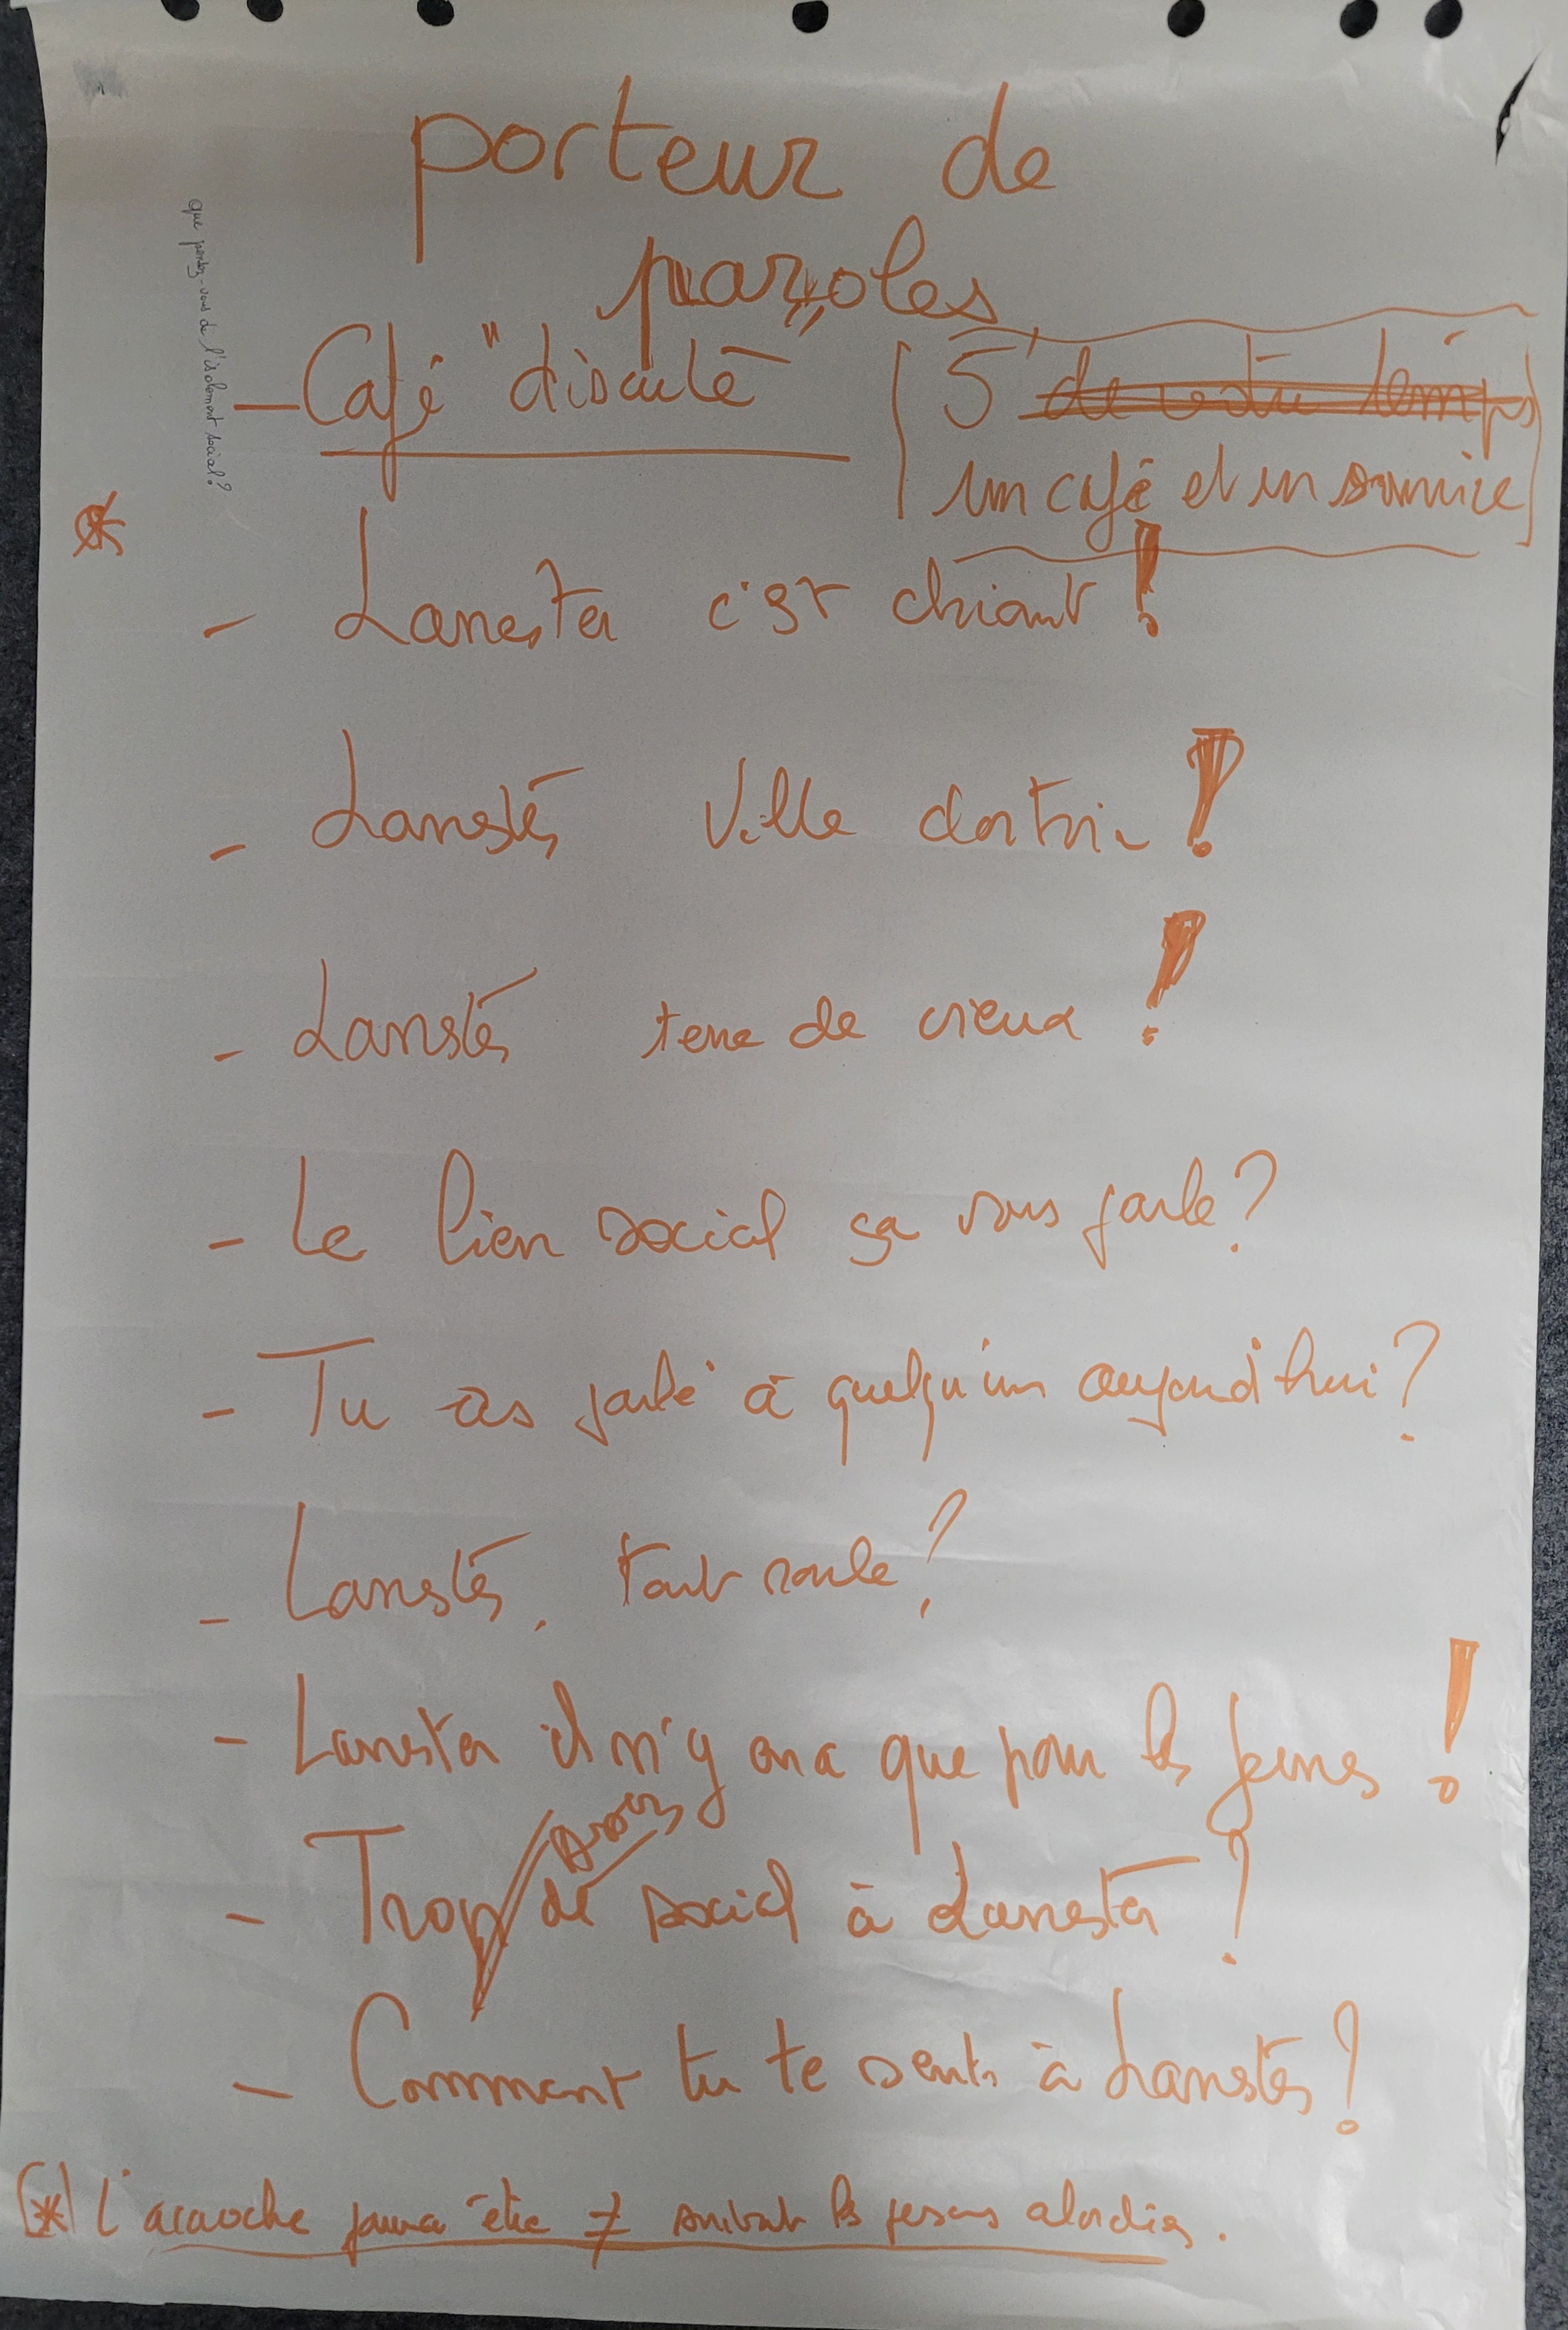 porteur de
paroles
que pensez-vous de l'isolement social?
- Café "discuté" (5' de votre temps
un café et un sourire)
*
- Lanester c'est chiant!
- Lanester Ville dortoir!
- Lanester terre de vieux!
- Le lien social ça vous parle?
- Tu as parlé à quelqu'un aujourd'hui?
- Lanester, tout roule?
- Lanester il n'y en a que pour les jeunes!
assez
- Trop / de social à Lanester?
- Comment tu te sents à Lanester?
[*] L'accroche pourra être ≠ suivant les persons abordées.